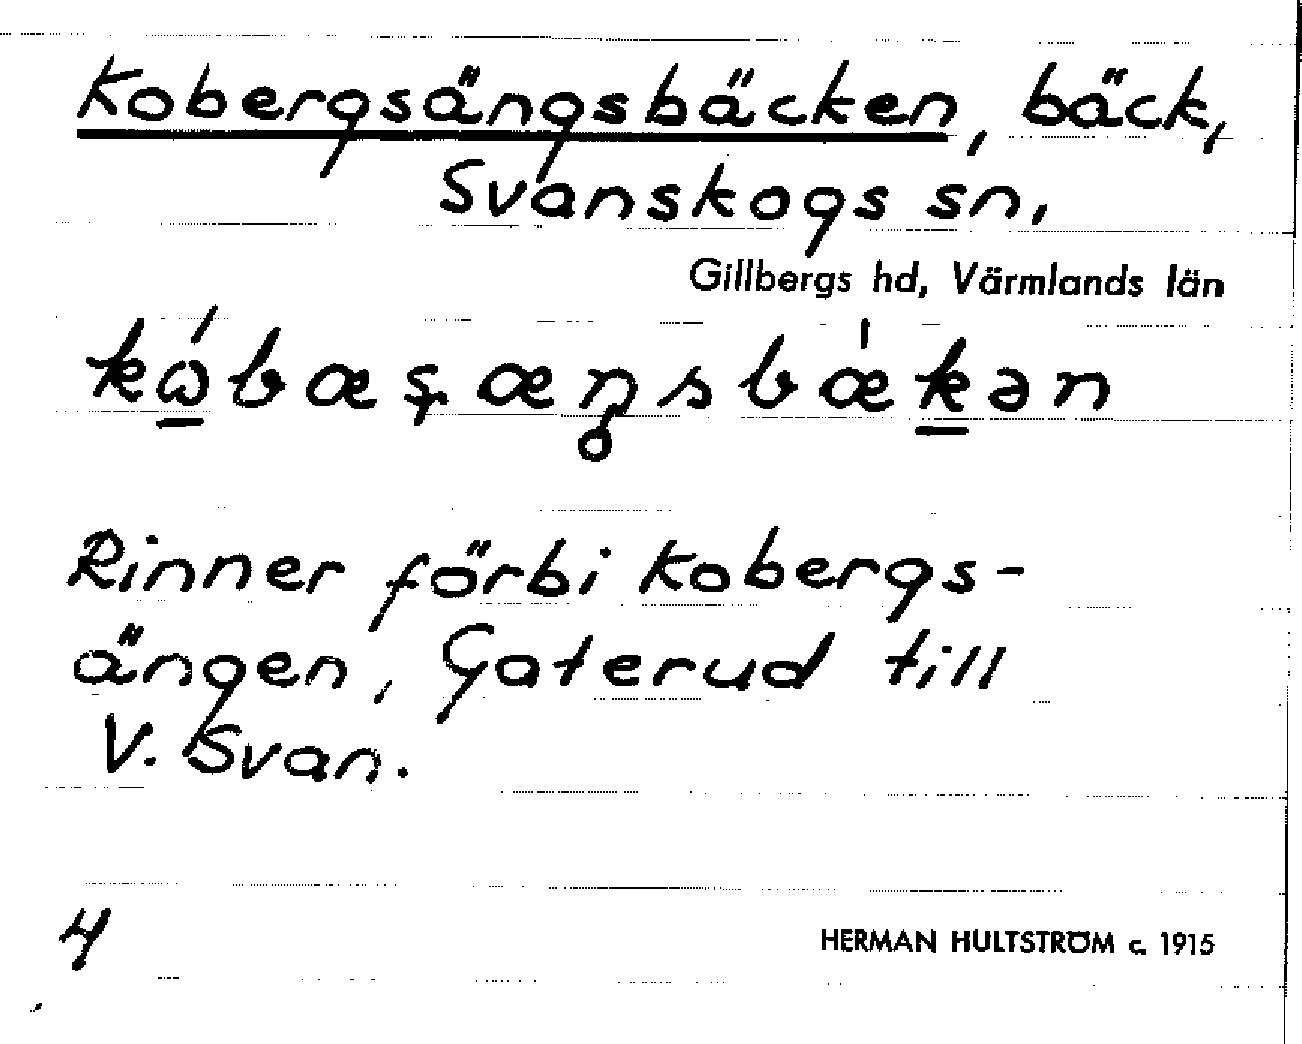 Kobergsängsbäcken, bäck,
Svanskogs sn,
Gillbergs hd, Värmlands län
kώ̲bæʂæŋsbæ̀k̲ən
Rinner förbi Kobergs-
ängen, Gaterud till
V. Svan.
4
HERMAN HULTSTRÖM c. 1915